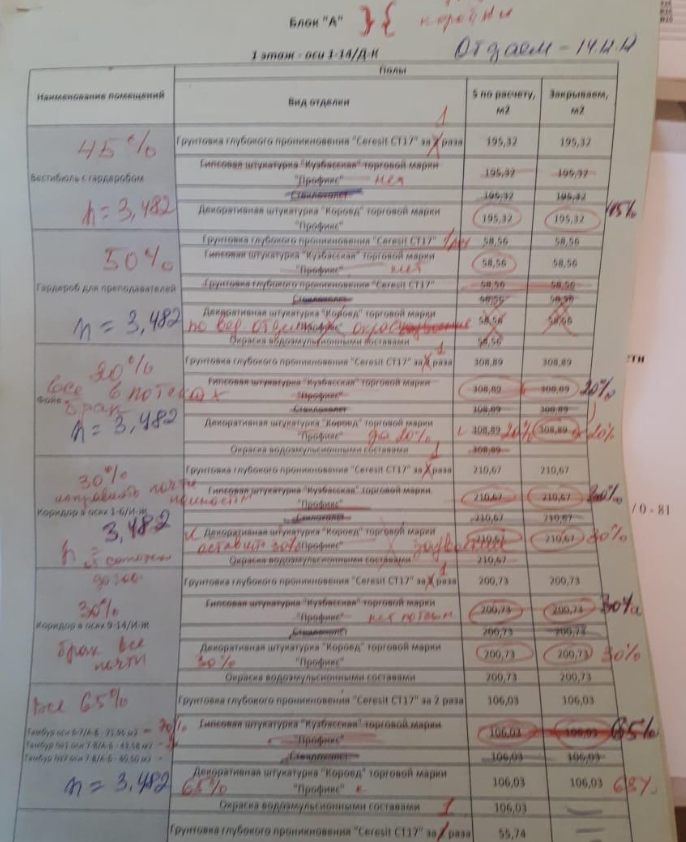 Блок "А" }{ коробки
1 этаж - оси 1-14/Д-К Отдаем - 14.12.
Полы
Наименование помещений Вид отделки S по расчету, м2 Закрываем, м2
45% Грунтовка глубокого проникновения "Ceresit CT17" за 1 раза 195,32 195,32
Гипсовая штукатурка "Кузбасская" торговой марки "Профикс" нет 195,32 195,32
Вестибюль с гардеробом Стеклохолст 195,32 195,32
h = 3,482 Декоративная штукатурка "Короед" торговой марки "Профикс" 195,32 195,32 45%
Грунтовка глубокого проникновения "Ceresit CT17" 1 раз 58,56 58,56
50% Гипсовая штукатурка "Кузбасская" торговой марки "Профикс" нет 58,56 58,56
Гардероб для преподавателей Грунтовка глубокого проникновения "Ceresit CT17" 58,56 58,56
Стеклохолст 58,56 58,56
h = 3,482 Декоративная штукатурка "Короед" торговой марки 58,56 58,56
Окраска водоэмульсионными составами 58,56
20% Грунтовка глубокого проникновения "Ceresit CT17" за 1 раза 308,89 308,89
все в потеках Гипсовая штукатурка "Кузбасская" торговой марки "Профикс" 308,89 308,89 20%
Фойе брак Стеклохолст 308,89 308,89
h = 3,482 Декоративная штукатурка "Короед" торговой марки "Профикс" до 20% 308,89 20% 308,89 20%
Окраска водоэмульсионными составами 308,89
30% Грунтовка глубокого проникновения "Ceresit CT17" за 1 раза 210,67 210,67
исправить почти полностью Гипсовая штукатурка "Кузбасская" торговой марки "Профикс" 210,67 210,67 30%
Коридор в осях 1-6/И-Ж Стеклохолст 210,67 210,67
h = 3,482 Декоративная штукатурка "Короед" торговой марки "Профикс" оставить 30% 210,67 210,67 30%
Окраска водоэмульсионными составами 210,67
Грунтовка глубокого проникновения "Ceresit CT17" за 1 раза 200,73 200,73
30% Гипсовая штукатурка "Кузбасская" торговой марки "Профикс" 200,73 200,73 30%
Коридор в осях 9-14/И-Ж Стеклохолст 200,73 200,73
брак все почти Декоративная штукатурка "Короед" торговой марки "Профикс" 30% 200,73 200,73 30%
Окраска водоэмульсионными составами 200,73 200,73
Все 65% Грунтовка глубокого проникновения "Ceresit CT17" за 2 раза 106,03 106,03
Гипсовая штукатурка "Кузбасская" торговой марки "Профикс" 106,03 106,03 65%
Стеклохолст 106,03 106,03
h = 3,482 65% Декоративная штукатурка "Короед" торговой марки "Профикс" 106,03 106,03 68%
Окраска водоэмульсионными составами 1 106,03
Грунтовка глубокого проникновения "Ceresit CT17" за 1 раза 55,74
/ 0 - 81